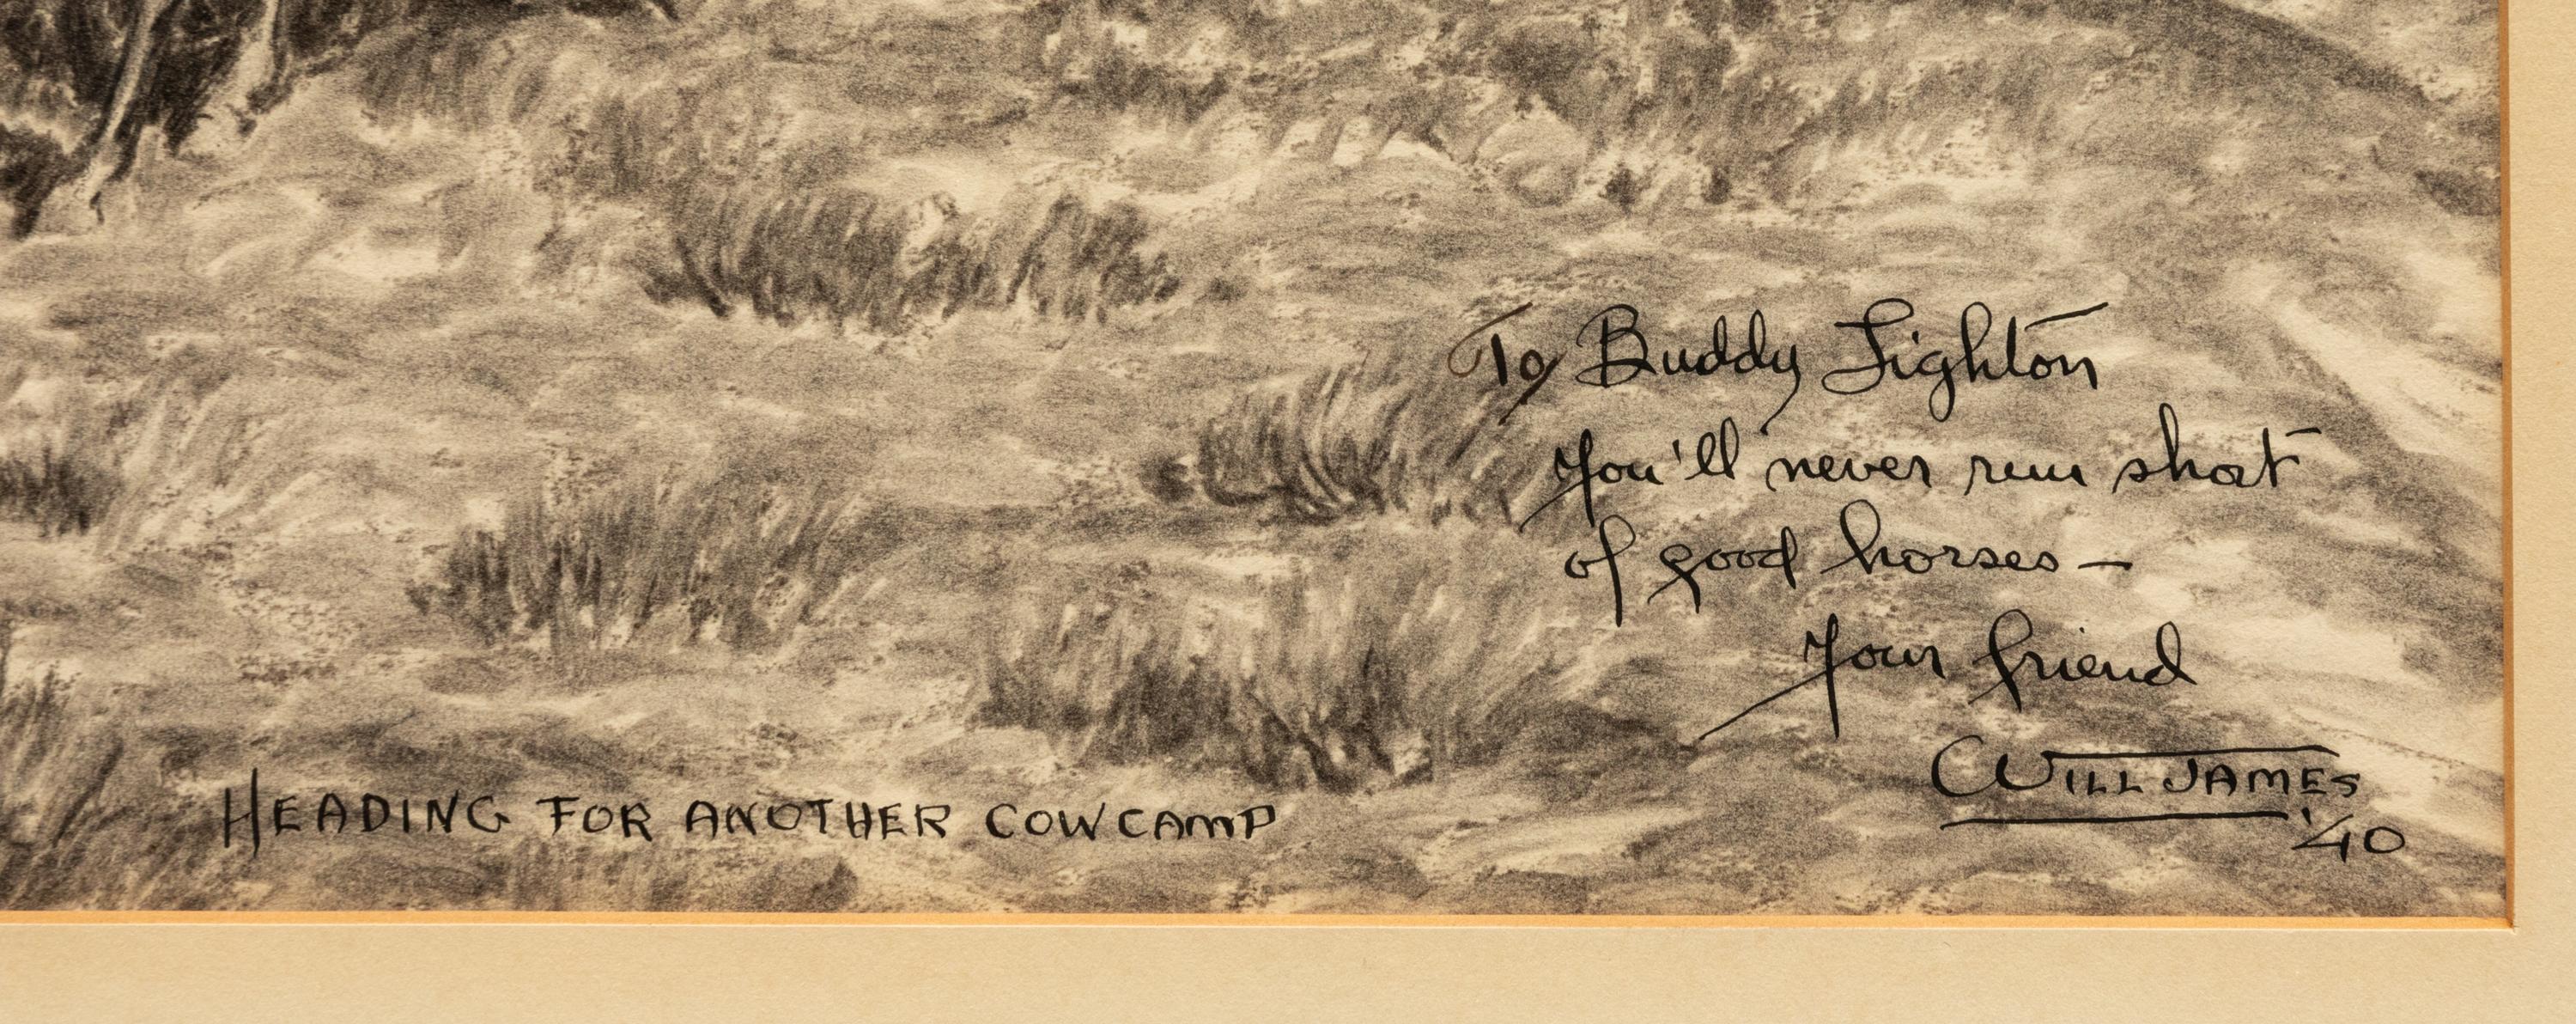 To Buddy Lighton
You'll never run short
of good horses —
Your friend
WILL JAMES
'40
HEADING FOR ANOTHER COW CAMP